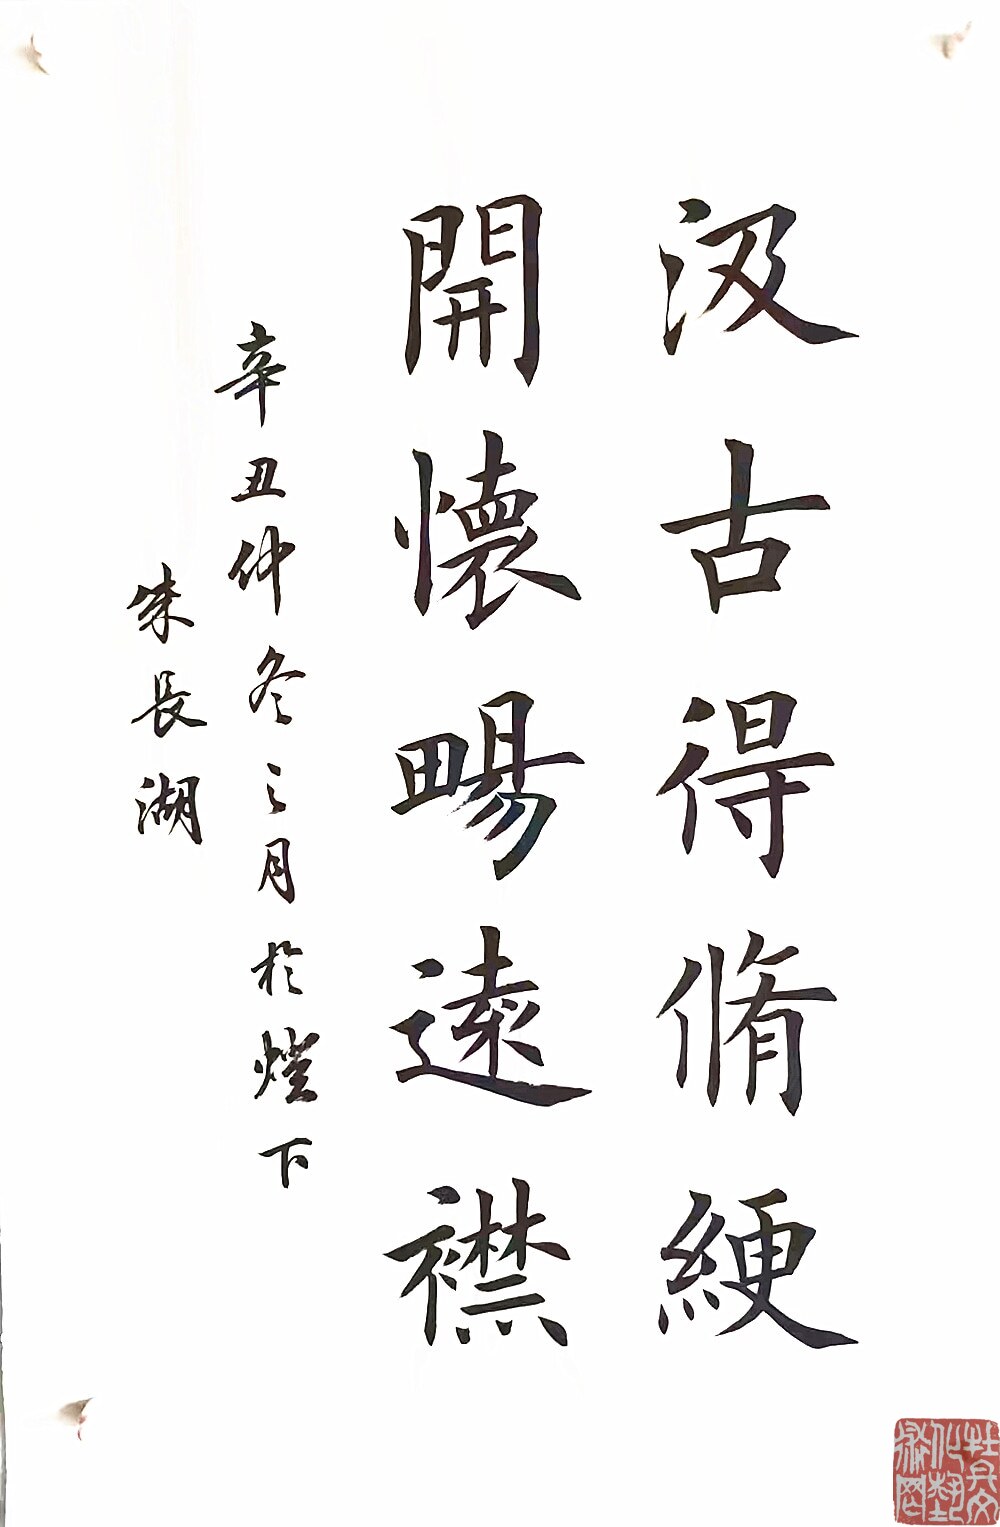 汲古得脩綆
開懷暢遠襟
辛丑仲冬之月於燈下
朱長湖